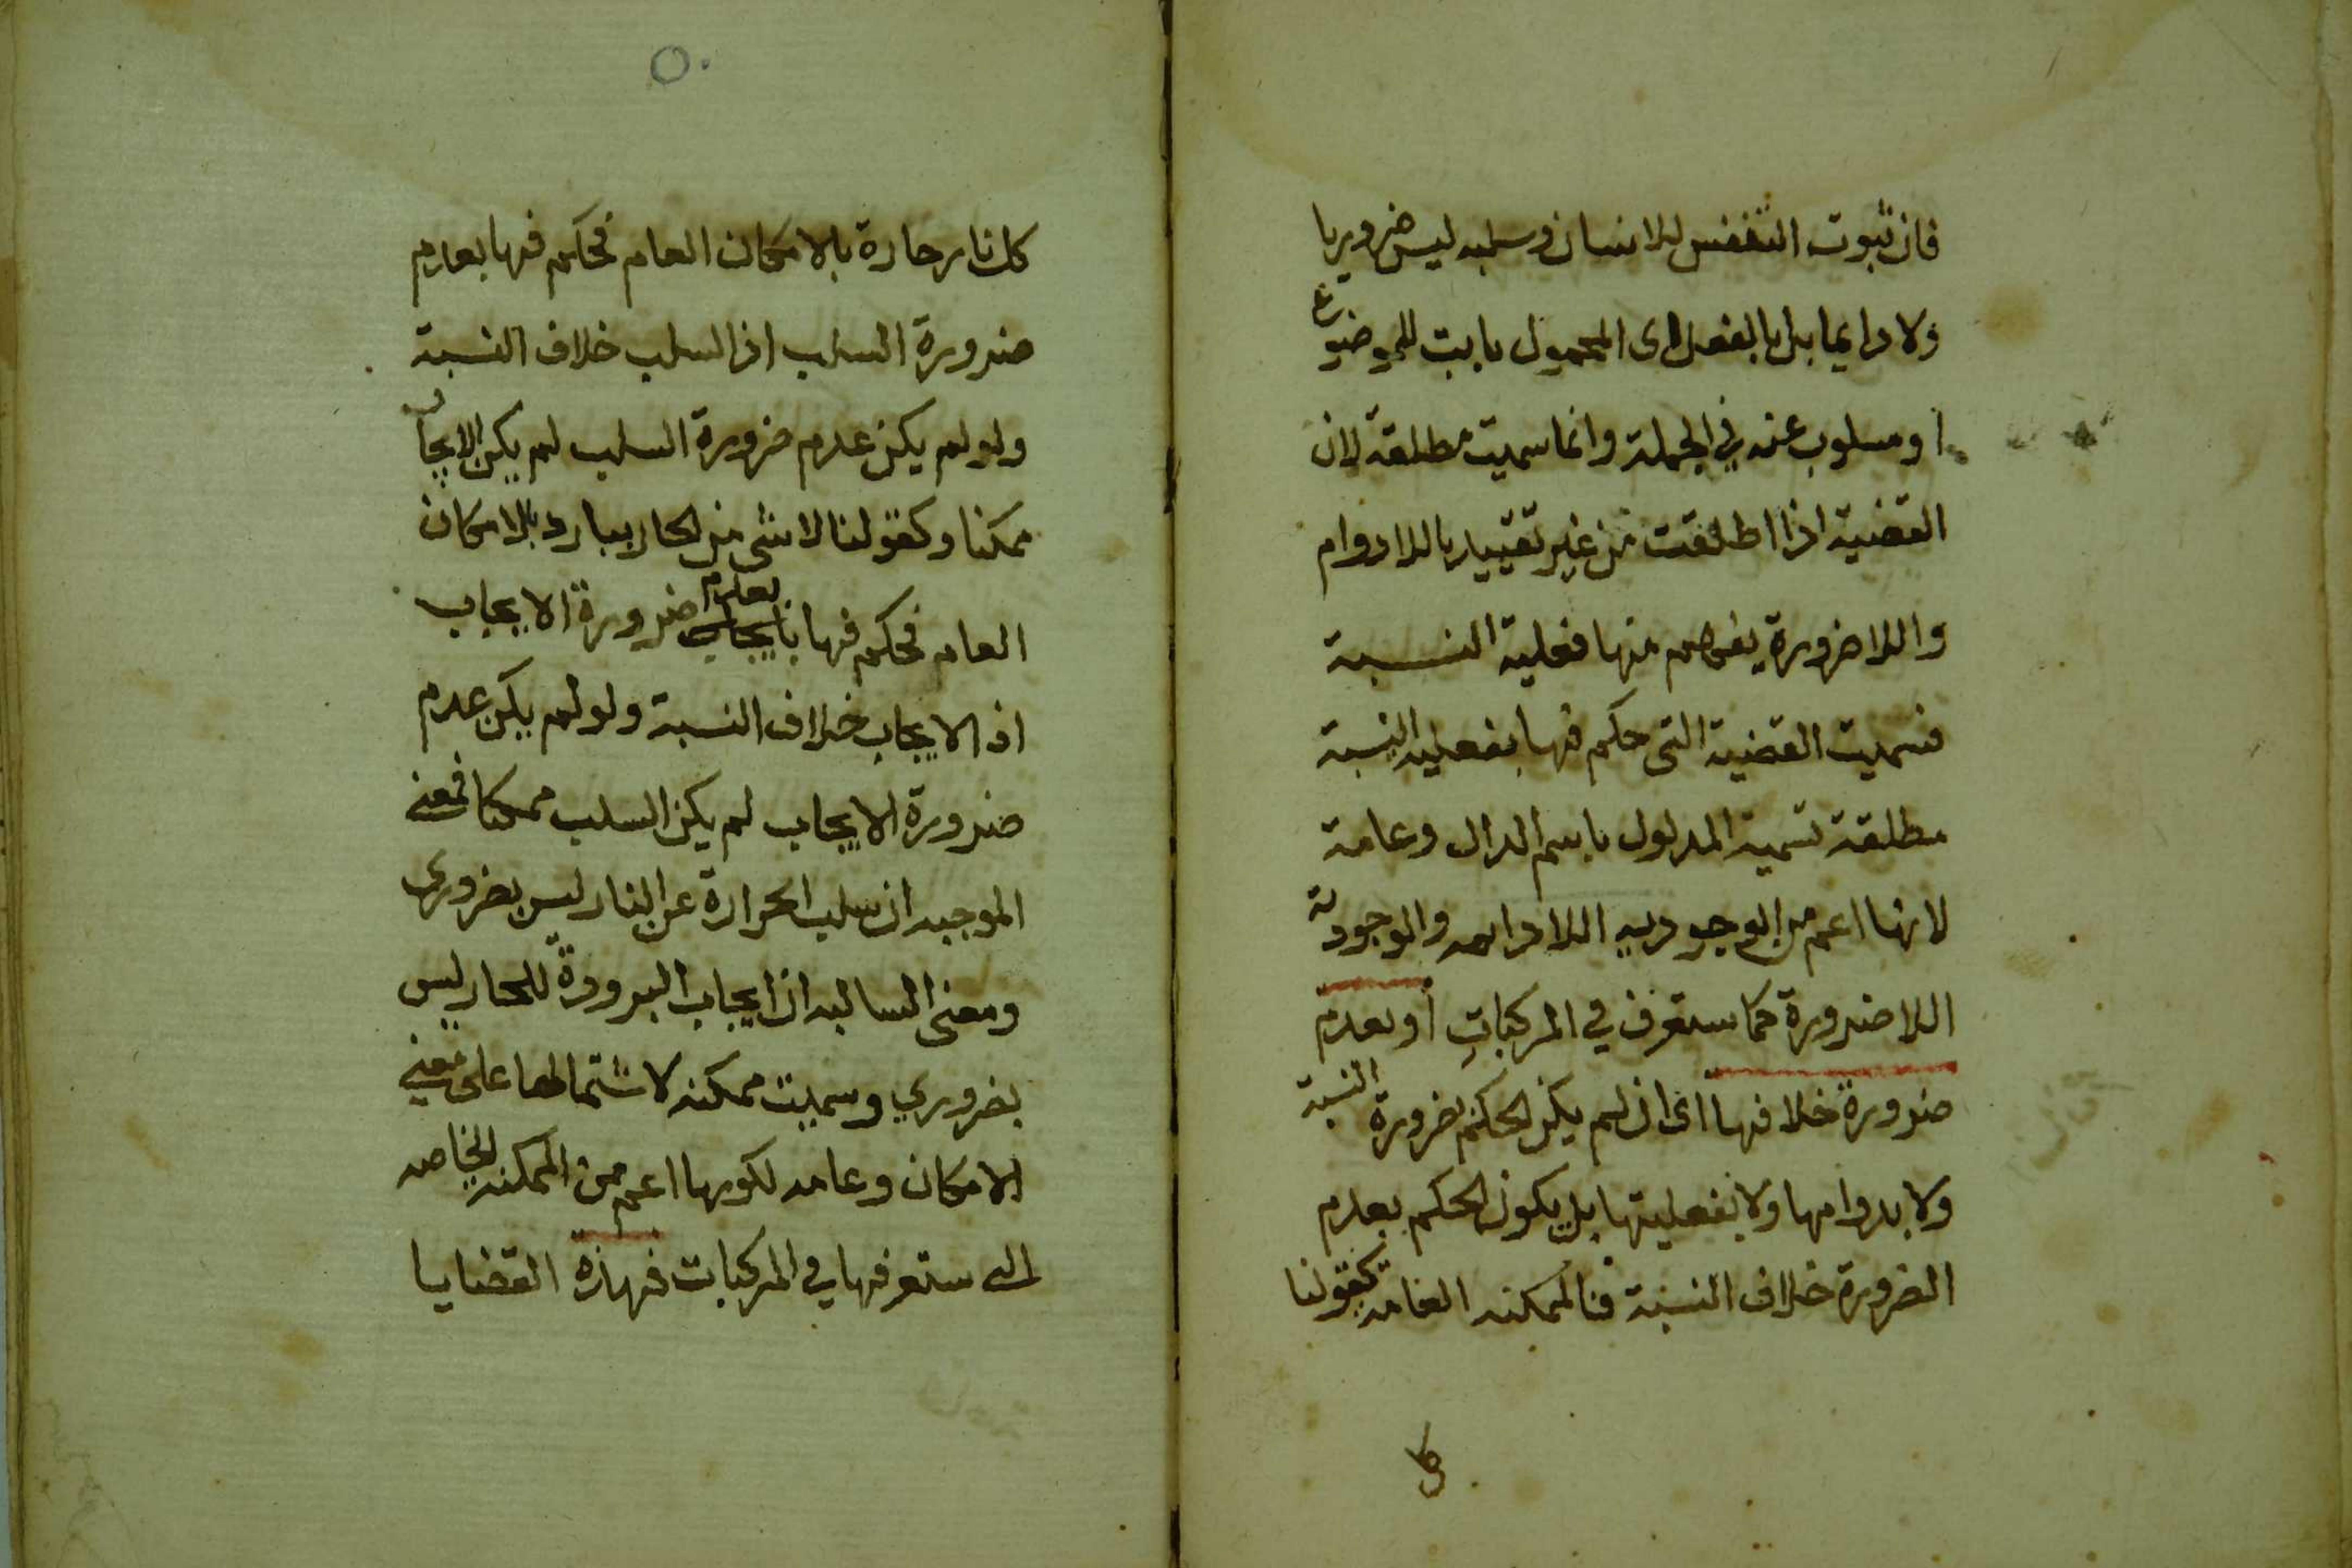 فان ثبوت التنفس للانسان وسلبه ليس ضروريا
ولا دايما بل بالفعل اى المحمول ثابت للموضوع
او مسلوب عنه في الجملة وانما سميت مطلقة لان
القضية اذا اطلقت من غير تقييد باللادوام
واللاضرورة يفهم منها فعلية النسبة
فسميت القضية التى حكم فيها بفعلية النسبة
مطلقة تسمية المدلول باسم الدال وعامة
لانها اعم من الوجودية اللادائمه والوجودية
اللاضرورة كما ستعرف في المركباتِ أو بعدم
ضرورة خلافها اى ان لم يكن الحكم بضرورة النسبة
ولا بدوامها ولا بفعليتها بل يكون الحكم بعدم
الضرورة خلاف النسبة فالممكنه العامه كقولنا
كل
٥٠
كل نار حارة بالامكان العام فحكم فيها بعدم
ضرورة السلب اذ السلب خلاف النسبة
ولو لم يكن عدم ضرورة السلب لم يكن الايجاب
ممكنا وكقولنا لا شئ من الحار ببارد بالامكان
العام فحكم فيها بايجاب بعدم ضرورة الايجاب
اذ الايجاب خلاف النسبة ولو لم يكن عدم
ضرورة الايجاب لم يكن السلب ممكنا فمعنى
الموجبه ان سلب الحرارة عن النار ليس بضرورى
ومعنى السالبه ان ايجاب البرودة للحار ليس
بضروري وسميت ممكنه لاشتمالها على معنى
الامكان وعامه لكونها اعم من الممكنه الخاصه
التى ستعرفها في المركبات فهذه القضايا